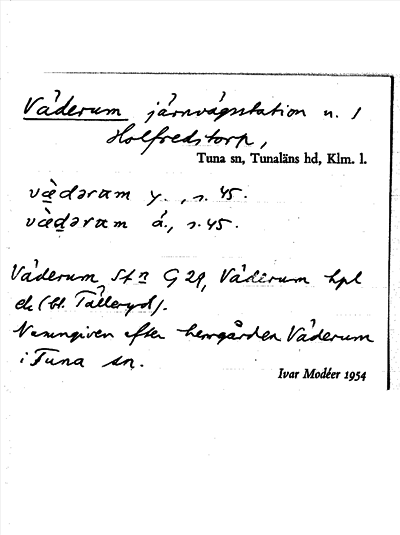 Väderum järnvägsstation u. 1
Holfredstorp,
Tuna sn, Tunaläns hd, Klm. l.
væ̀dərɑm y., s. 45.
væ̀dərɑm ä., s. 45.
Väderum Stn G 28, Väderum hpl
ek (bl. Tälleryd).
Namngiven efter herrgården Väderum
i Tuna sn.
Ivar Modéer 1954